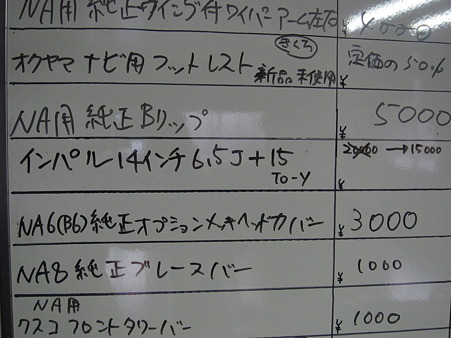 NA用 純正ウイング付ワイパーアーム左右 ¥4000
さくら
オクヤマ ナビ用 フットレスト 新品 未使用 ¥定価の50%
NA用 純正Bリップ ¥5000
インパル14インチ 6.5J+15 ¥20000→15000
To-Y
NA6(B6)純正オプションメッキヘッドカバー ¥3000
NA8 純正ブレースバー ¥1000
NA用
クスコ フロントタワーバー ¥1000